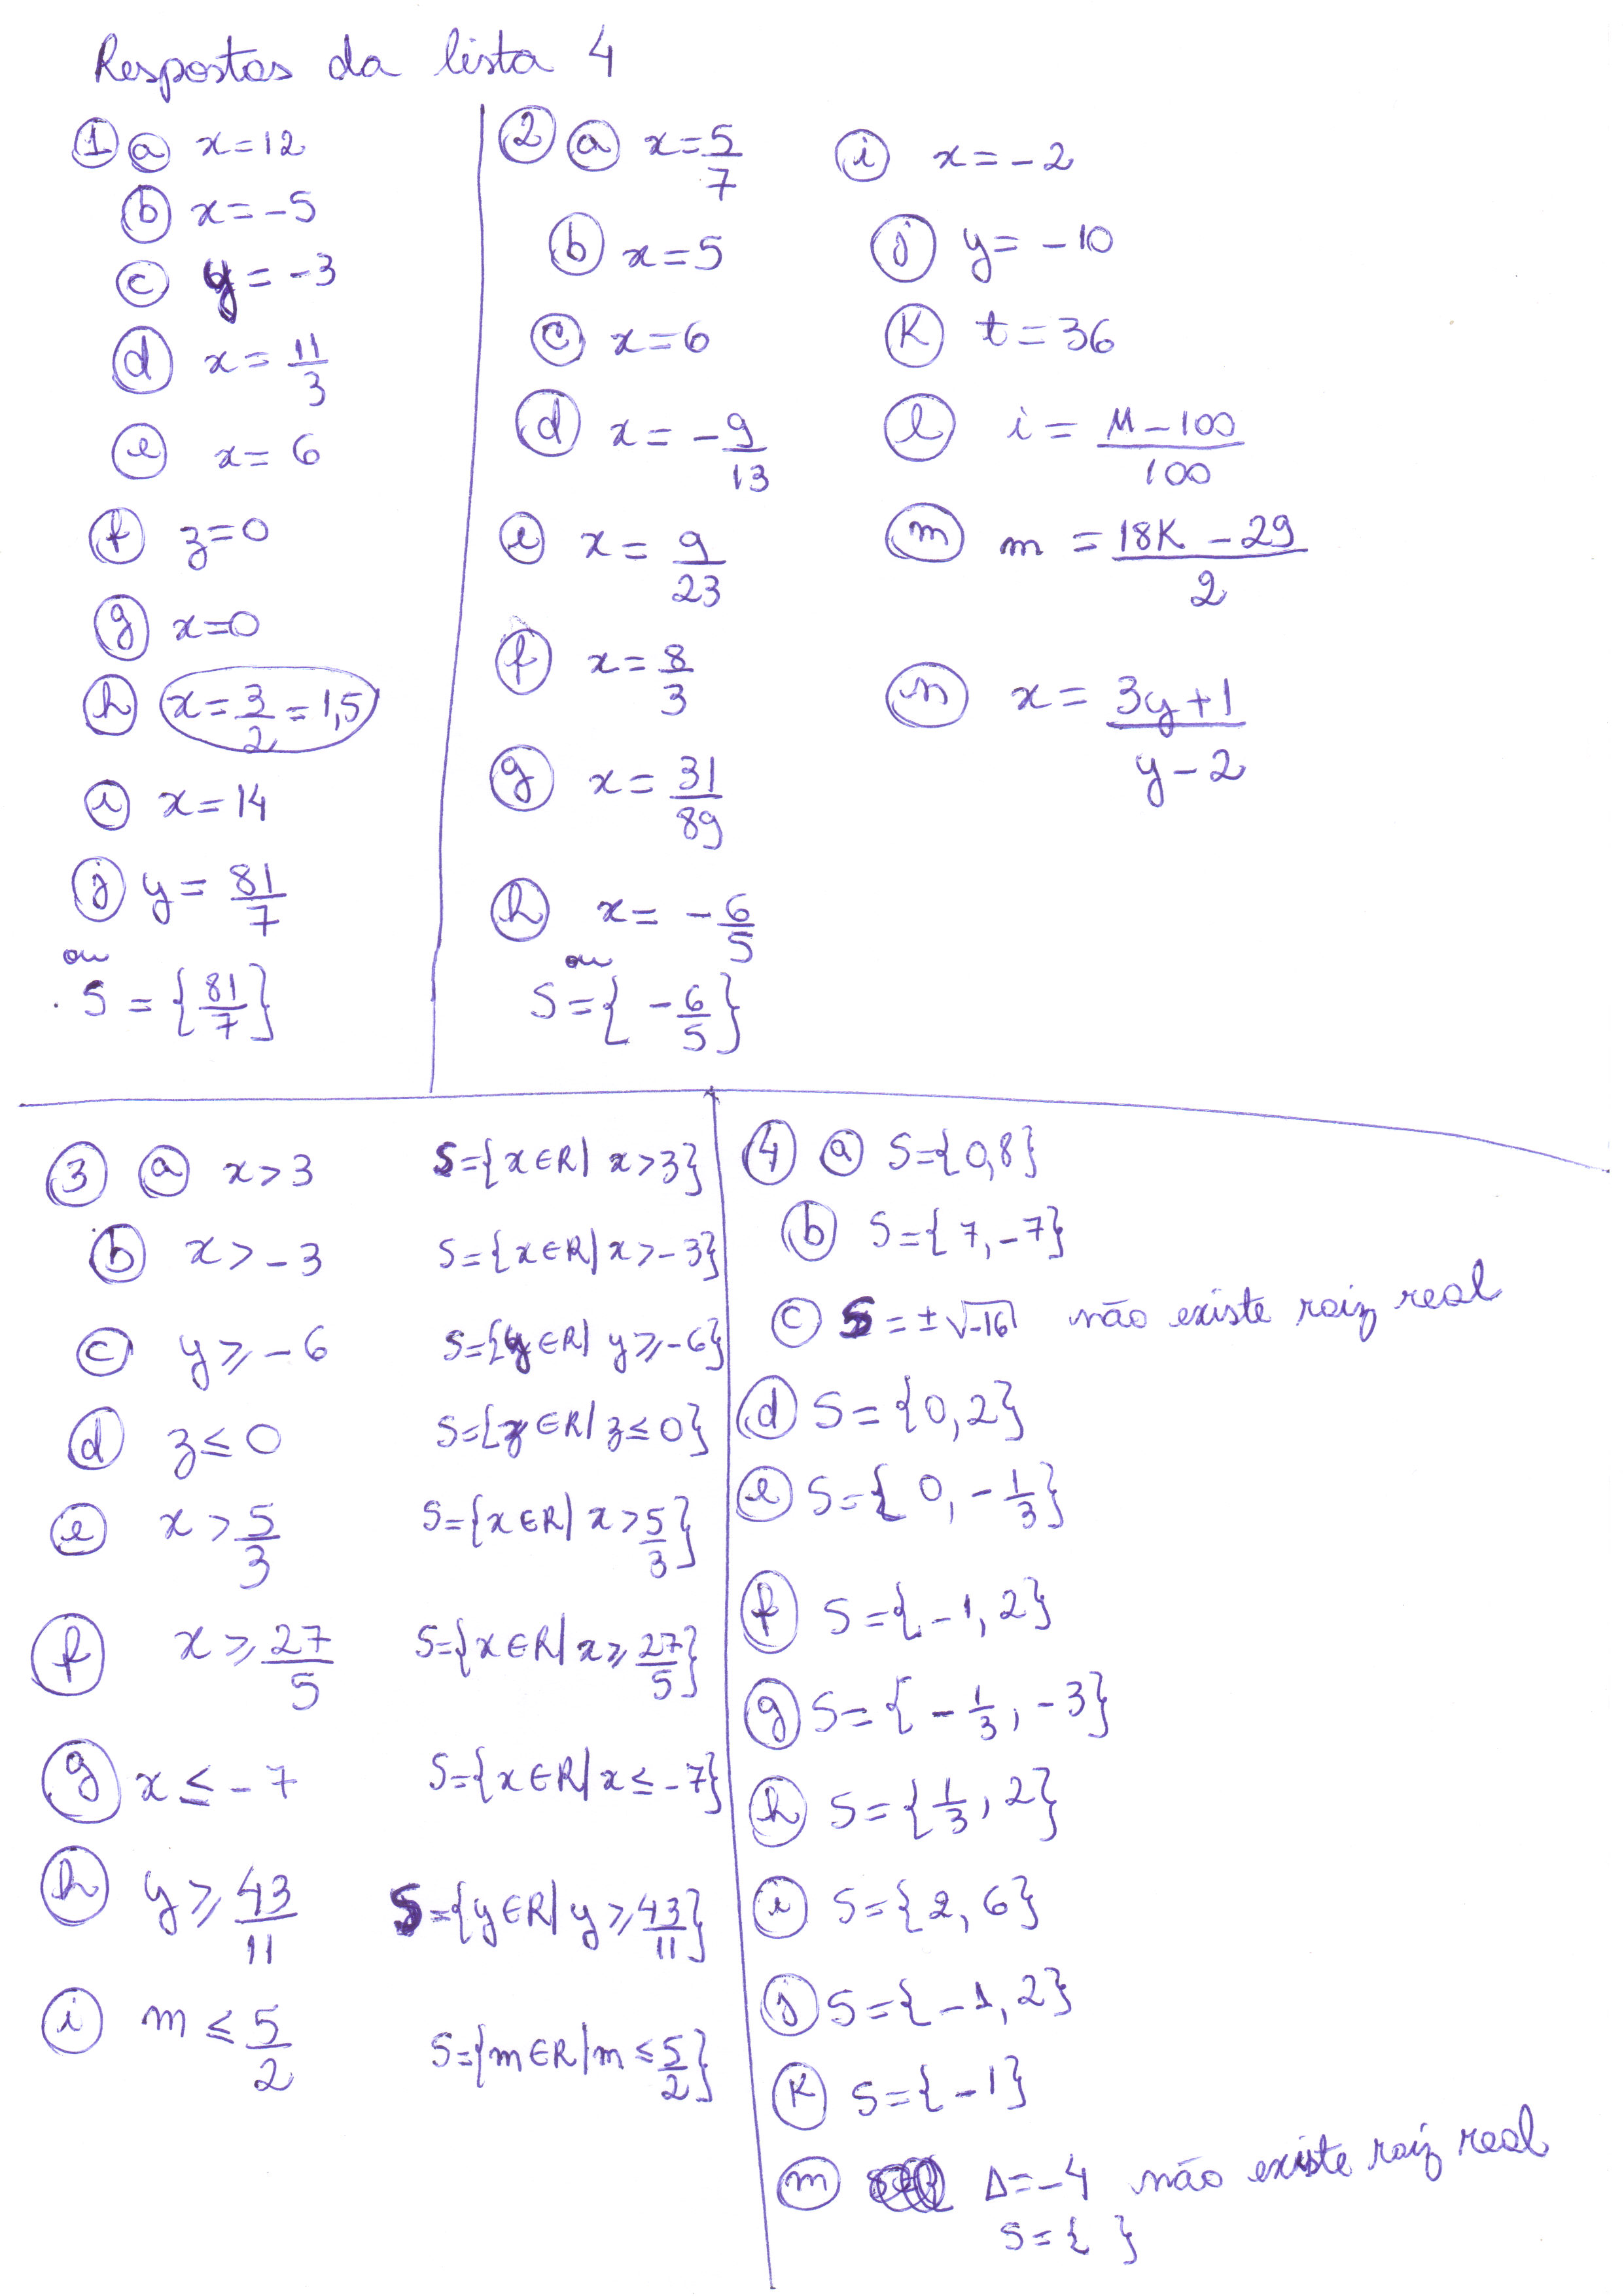 Respostas da lista 4
① ⓐ x = 12
ⓑ x = -5
ⓒ y = -3
ⓓ x = 11/3
ⓔ x = 6
ⓕ z = 0
ⓖ x = 0
ⓗ x = 3/2 = 1,5
ⓘ x = 14
ⓙ y = 81/7
ou
S = {81/7}
② ⓐ x = 5/7
ⓑ x = 5
ⓒ x = 6
ⓓ x = -9/13
ⓔ x = 9/23
ⓕ x = 8/3
ⓖ x = 31/89
ⓗ x = -6/5
ou
S = {-6/5}
ⓘ x = -2
ⓙ y = -10
Ⓚ t = 36
ⓛ i = (M - 100)/100
ⓜ m = (18K - 29)/2
ⓝ x = (3y + 1)/(y - 2)
③ ⓐ x > 3 S = {x ∈ R | x > 3}
ⓑ x > -3 S = {x ∈ R | x > -3}
ⓒ y ⩾ -6 S = {y ∈ R | y ⩾ -6}
ⓓ z ≤ 0 S = {z ∈ R | z ≤ 0}
ⓔ x > 5/3 S = {x ∈ R | x > 5/3}
ⓕ x ⩾ 27/5 S = {x ∈ R | x ⩾ 27/5}
ⓖ x ≤ -7 S = {x ∈ R | x ≤ -7}
ⓗ y ⩾ 43/11 S = {y ∈ R | y ⩾ 43/11}
ⓘ m ≤ 5/2 S = {m ∈ R | m ≤ 5/2}
④ ⓐ S = {0, 8}
ⓑ S = {7, -7}
ⓒ S = ±√-16 não existe raiz real
ⓓ S = {0, 2}
ⓔ S = {0, -1/3}
ⓕ S = {-1, 2}
ⓖ S = {-1/3, -3}
ⓗ S = {1/3, 2}
ⓘ S = {2, 6}
ⓙ S = {-1, 2}
Ⓚ S = {-1}
ⓜ Δ = -4 não existe raiz real
S = { }